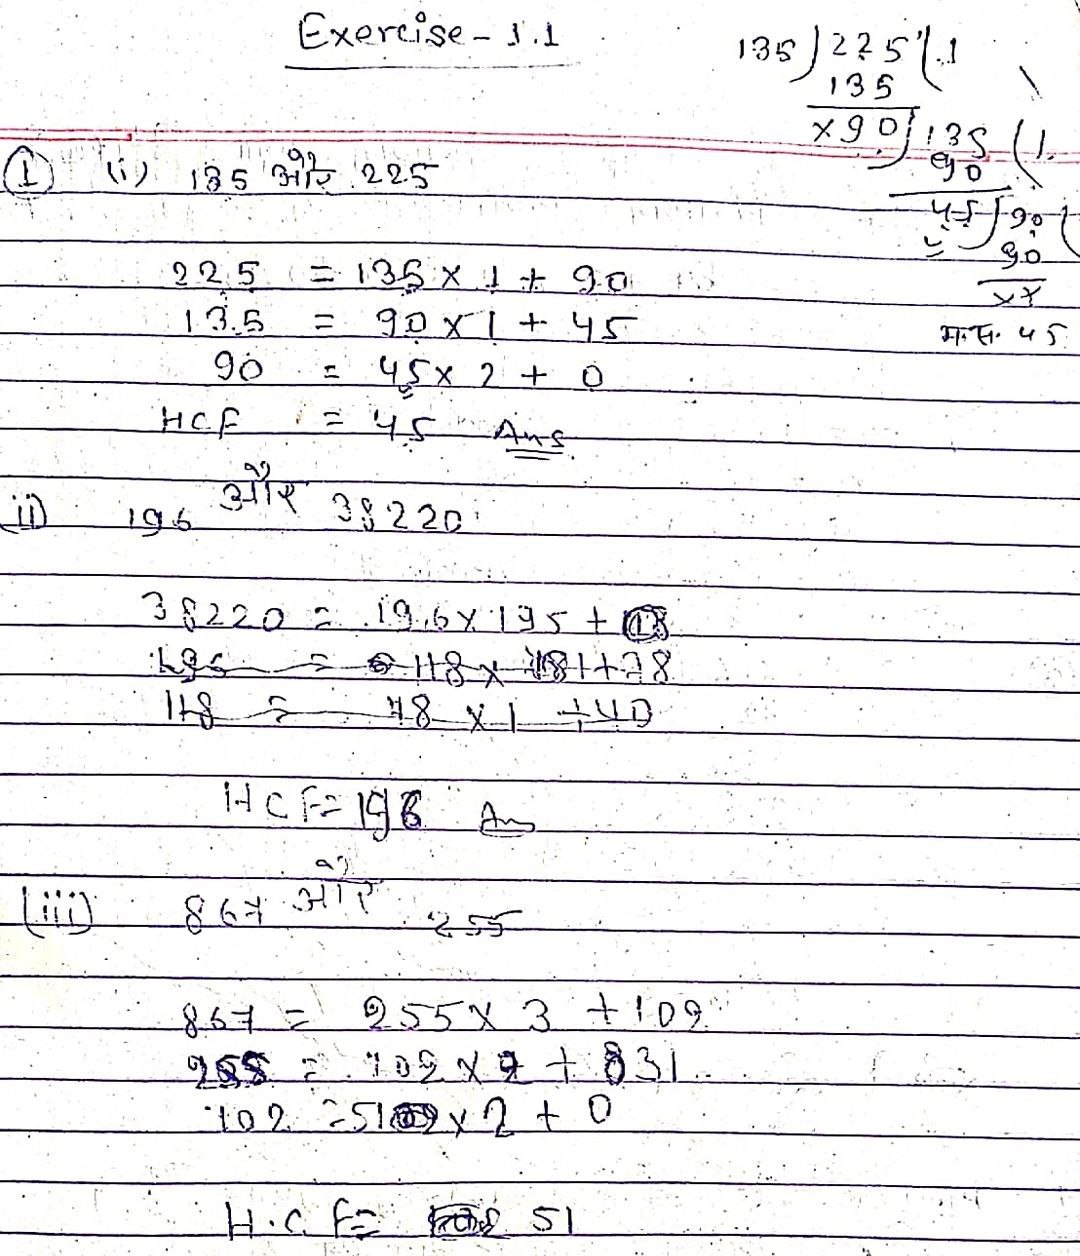 Exercise - 1.1
135 ) 225 ( 1
135
x 90 ) 135 ( 1.
90
45 ) 90 (
90
xx
म.स. 45
① (i) 135 और 225
225 = 135 x 1 + 90
135 = 90 x 1 + 45
90 = 45 x 2 + 0
HCF = 45 Ans.
ii) 196 और 38220
38220 = 196 x 195 +
118 = 78 x 1 + 40
HCF = 196 Ans
(iii) 867 और 255
867 = 255 x 3 + 102
255 = 102 x 2 +
102 = 51 x 2 + 0
H.C.F = 51